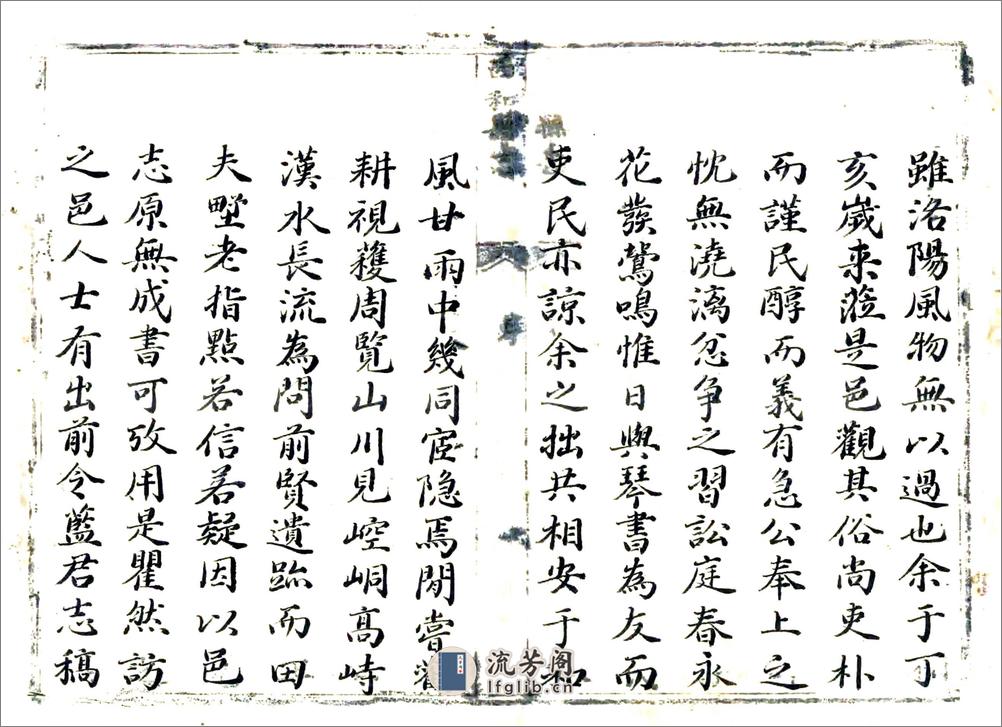 雖洛陽風物無以過也余于丁
亥歲来蒞是邑觀其俗尚吏朴
而謹民醇而義有急公奉上之
忱無澆漓忿争之習訟庭春永
花發鶯鳴惟日與琴書為友而
吏民亦諒余之拙共相安于和
風甘雨中幾同宦隐焉閒嘗
耕視穫周覽山川見崆峒高峙
漢水長流為問前賢遺跡而田
夫野老指點若信若疑因以邑
志原無成書可攷用是瞿然訪
之邑人士有出前令藍君志稿
流芳阁
lfglib.cn